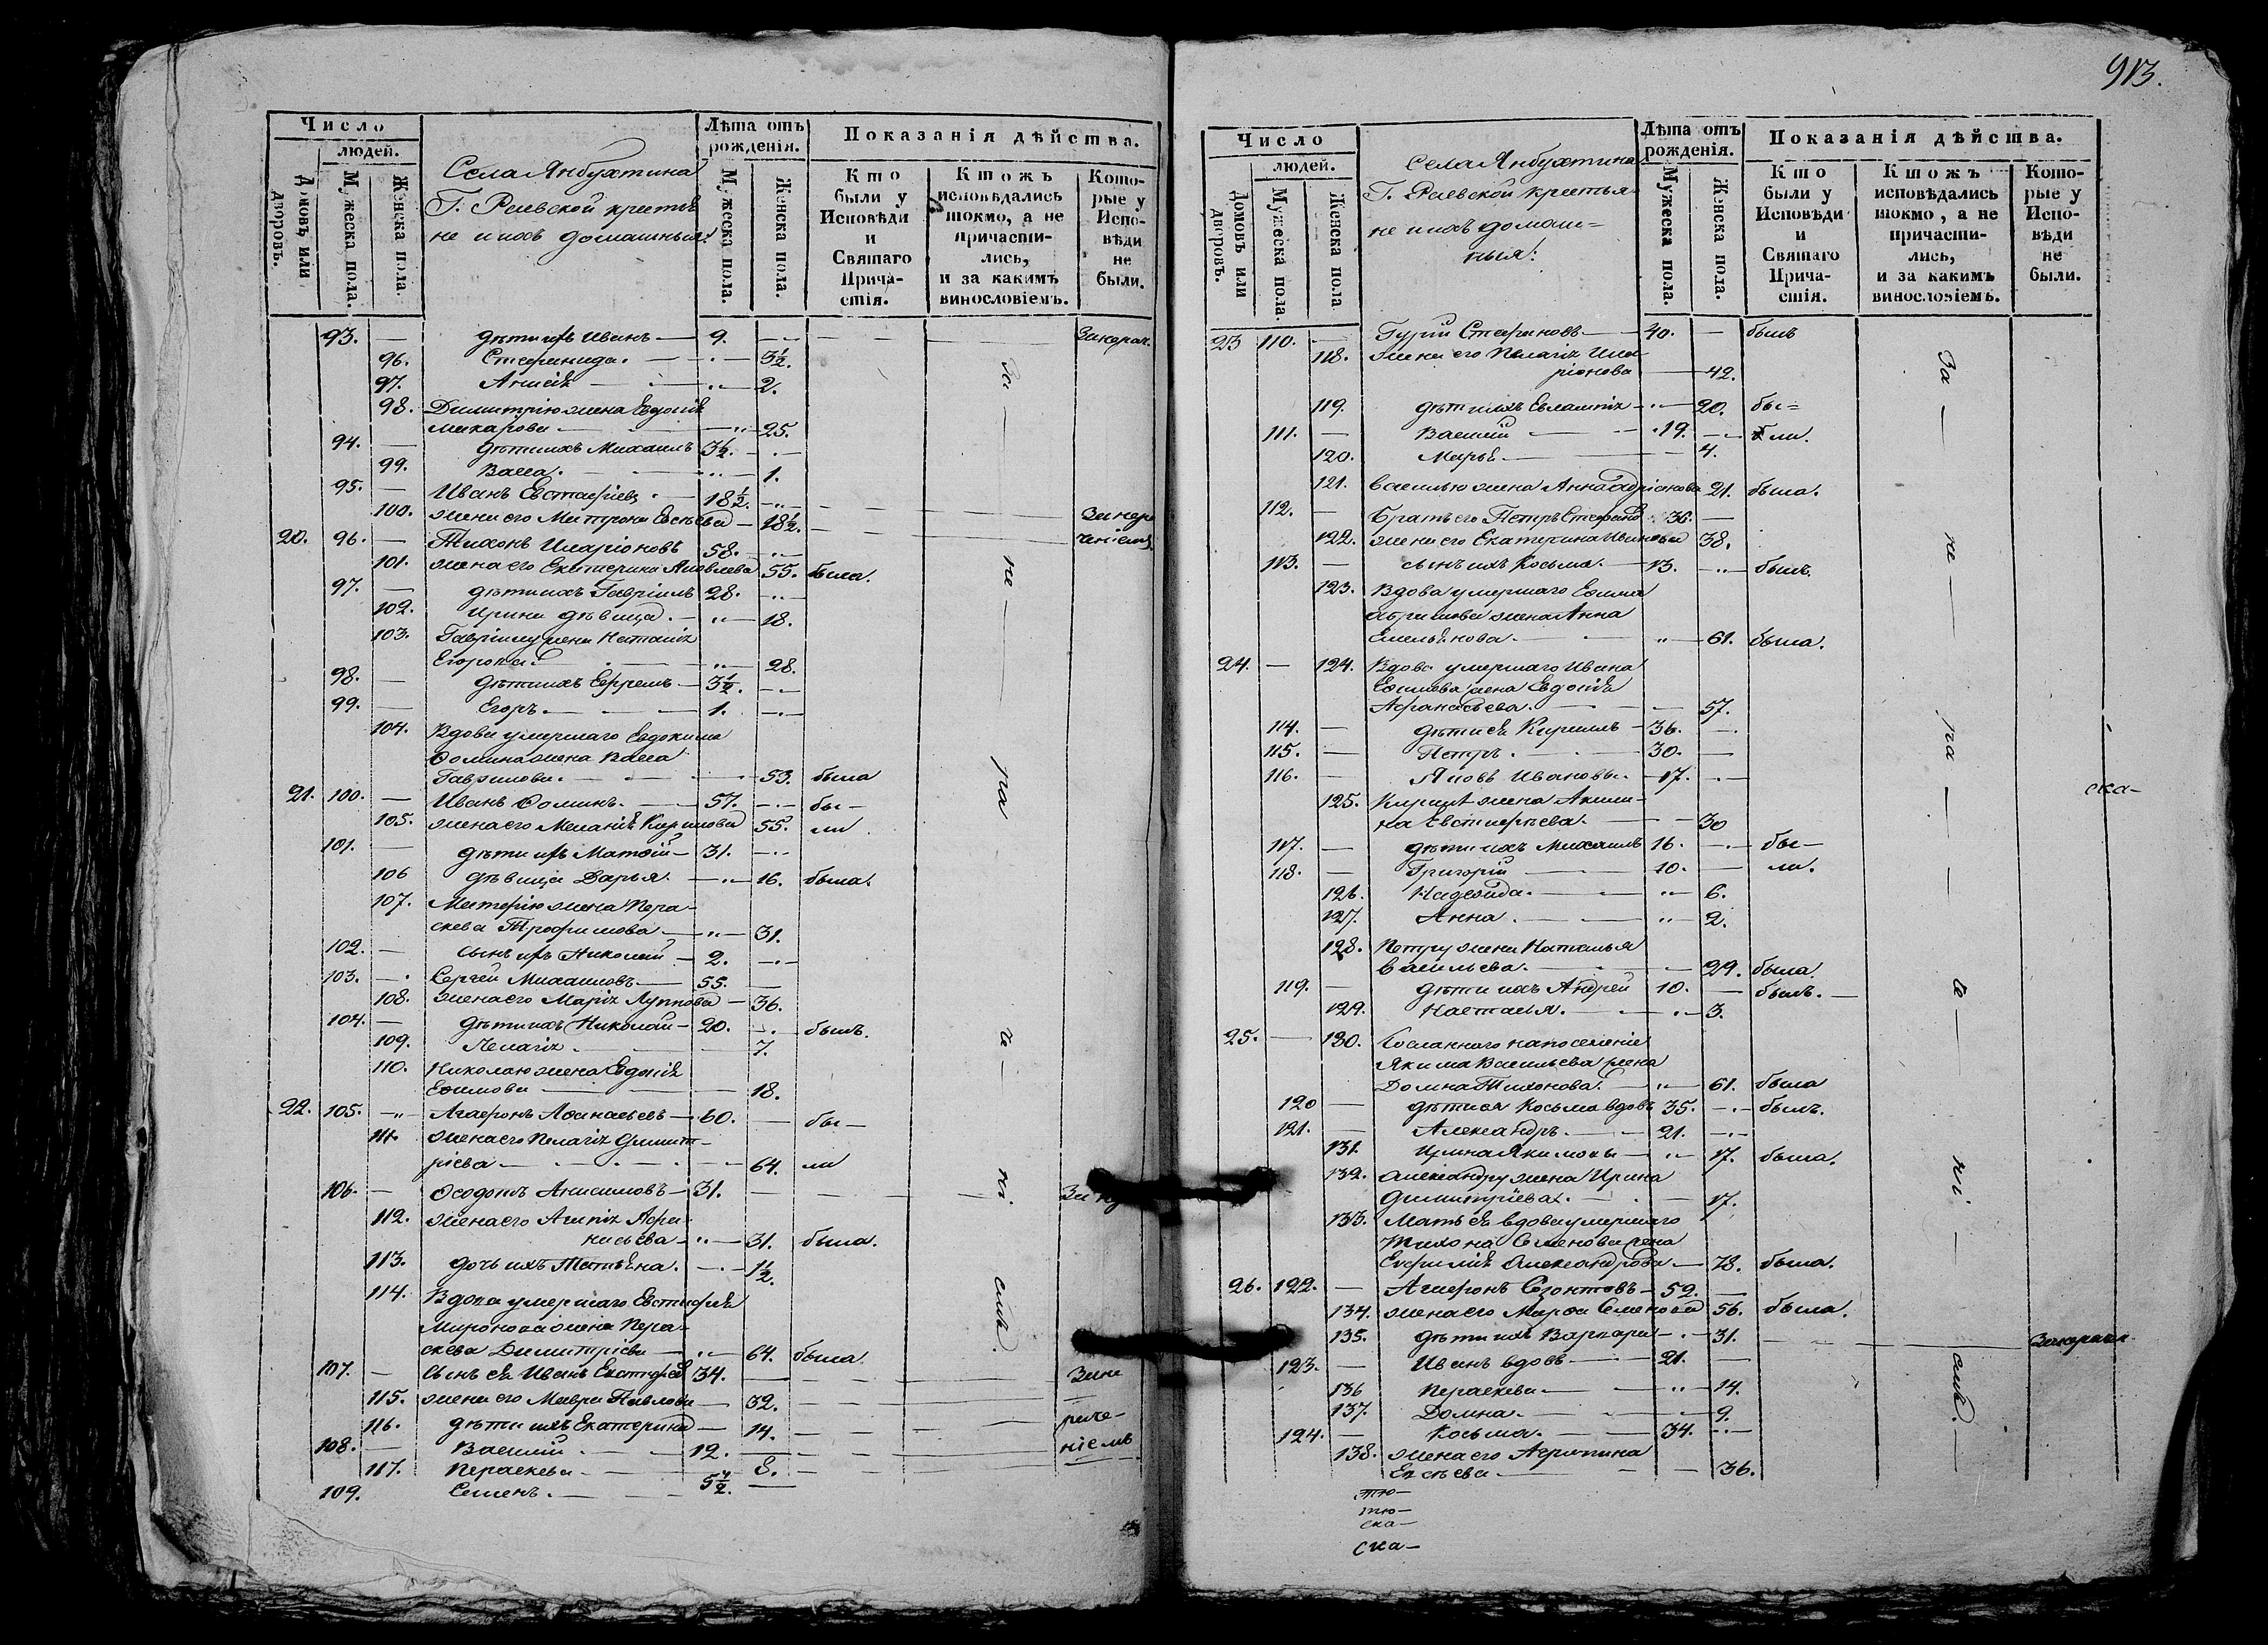 913.
Число
людей.
Домовъ, или дворовъ.
Мужеска пола.
Женска пола.
Села Янбухтина
Г. Раевской крестья
не и ихъ домашныя:
Лѣта отъ
рожденія.
Мужеска пола.
Женска пола.
Показанія дѣйства.
Кто
были у
Исповѣди
и
Святаго
Прича-
стія.
Ктожъ
исповѣдались
токмо, а не
причасти-
лись,
и за какимъ
винословіемъ.
Кото-
рые у
Испо-
вѣди
не
были.
93. — дѣти ихъ Иванъ — 9.
96. Стефанида. — 3½.
97. Анисія — 2.
98. Димитрію жена Евдокія
Макарова — 25.
94. — дѣти ихъ Михаилъ 3½.
99. Васса. — 1.
95. — Иванъ Евстафіевъ — 18½.
100. жена его Матрона Евсѣева — 18½.
20. 96. — Тихонъ Иларіоновъ 58.
101. жена его Екатерина Яковлева 55. была.
97. — дѣти ихъ Гавріилъ 28.
102. Ирина дѣвица. — 18.
103. Гавріилу жена Наталія
Егорова. — 28.
98. — дѣти ихъ Ефремъ — 3½.
99. — Егоръ. — 1.
104. Вдова умершаго Евдокима
Ѳомина жена Васса
Гаврилова. — 53. была
21. 100. — Иванъ Ѳоминъ. — 57. бы-
105. жена его Меланія Кирилова 55. ли
101. — дѣти ихъ Матѳій — 31.
106 дѣвица Дарья. — 16. была.
107. Матѳію жена Пара-
скева Трофимова — 31.
102. — сынъ ихъ Николай — 2.
103. — Сергей Михаиловъ — 55.
108. жена его Марія Луппова — 36.
104. — дѣти ихъ Николай — 20. былъ.
109. Пелагія — 7.
110. Николаю жена Евдокія
Ефимова — 18.
22. 105. Агафонъ Аѳанасьевъ — 60. — бы-
111. жена его Пелагія Димит-
ріева — 64. ли
106. — Ѳеодотъ Анисимовъ — 31.
112. жена его Агапія Афа-
насьева — 31. была.
113. дочь ихъ Татьяна. — 1½.
114. Вдова умершаго Евстафія
Миронова жена Пара-
скева Димитріева — 64. была.
107. — Сынъ ея Иванъ Евстафіевъ 34.
115. жена его Мавра Павлова — 32.
116. дѣти ихъ Екатерина — 14.
108. — Василій — 12.
117. Параскева — 8.
109. Семенъ. — 5½.
За — не — ра — че — ні — емъ.
Число
людей.
Домовъ или дворовъ.
Мужеска пола.
Женска пола
Села Янбухтина
Г. Раевской крестья
не и ихъ домаш=
ныя:
Лѣта отъ
рожденія.
Мужеска пола.
Женска пола.
Показанія дѣйства.
Кто
были у
Исповѣди
и
Святаго
Прича-
стія.
Ктожъ
исповѣдались
токмо, а не
причасти-
лись,
и за какимъ
винословіемъ.
Кото-
рые у
Испо-
вѣди
не
были.
23 110. — Гурій Стефановъ — 40. — былъ
118. жена его Пелагія Ила-
ріонова — 42.
119. дѣти ихъ Евлампія — 20. бы=
111. — Василій — 19. ли.
120. Марья — 4.
121. Василью жена Анна Адріанова 21. была.
112. — Братъ его Петръ Стефановъ 36. —
122. жена его Екатерина Иванова 38.
113. — сынъ ихъ Косьма. — 13. былъ.
123. Вдова умершаго
жена Анна
Емельянова. — 61. была.
24. — 124. Вдова умершаго Ивана
жена Евдокія
Афанасьева. — 57.
114. — дѣти ея Кирилъ — 36.
115. — Петръ. — 30. —
116. — Яковъ Ивановы. — 17.
125. Кирилѣ жена Акили-
на Евстафьева. — 30
117. — дѣти ихъ Михаилъ 16. бы-
118. — Григорій — 10. — ли.
126. Надежда. — 6.
127. Анна. — 2.
128. Петру жена Наталья
Васильева. — 29. была.
119. — дѣти ихъ Андрей 10. — былъ. —
129. Настасья. — 3.
25. — 130. Сосланнаго на поселеніе
Якима Васильева жена
Домна Тихонова. — 61. была
120 — дѣти ея Косьма вдовъ 35. былъ.
121. — Александръ. — 21.
131. Ирина Якимовы — 17. была.
132. Александру жена Ирина
Димитріева. — 17.
133. Мать ея вдова умершаго
Тихона Семенова жена
Евфимія Александрова — 78. была.
26. 122. — Агафонъ Созонтовъ — 52. —
134. жена его Марѳа Семенова 56. была.
135. дѣти ихъ Варвара — 31.
123. — Иванъ вдовъ — 21. —
136 Параскева — 14.
137. Домна. — 9.
124. — Косьма. — 34.
138. жена его Агрипина
Евсѣева — 36.
За — не — ра — че — ні — емъ.
ска-
ска-
ска-